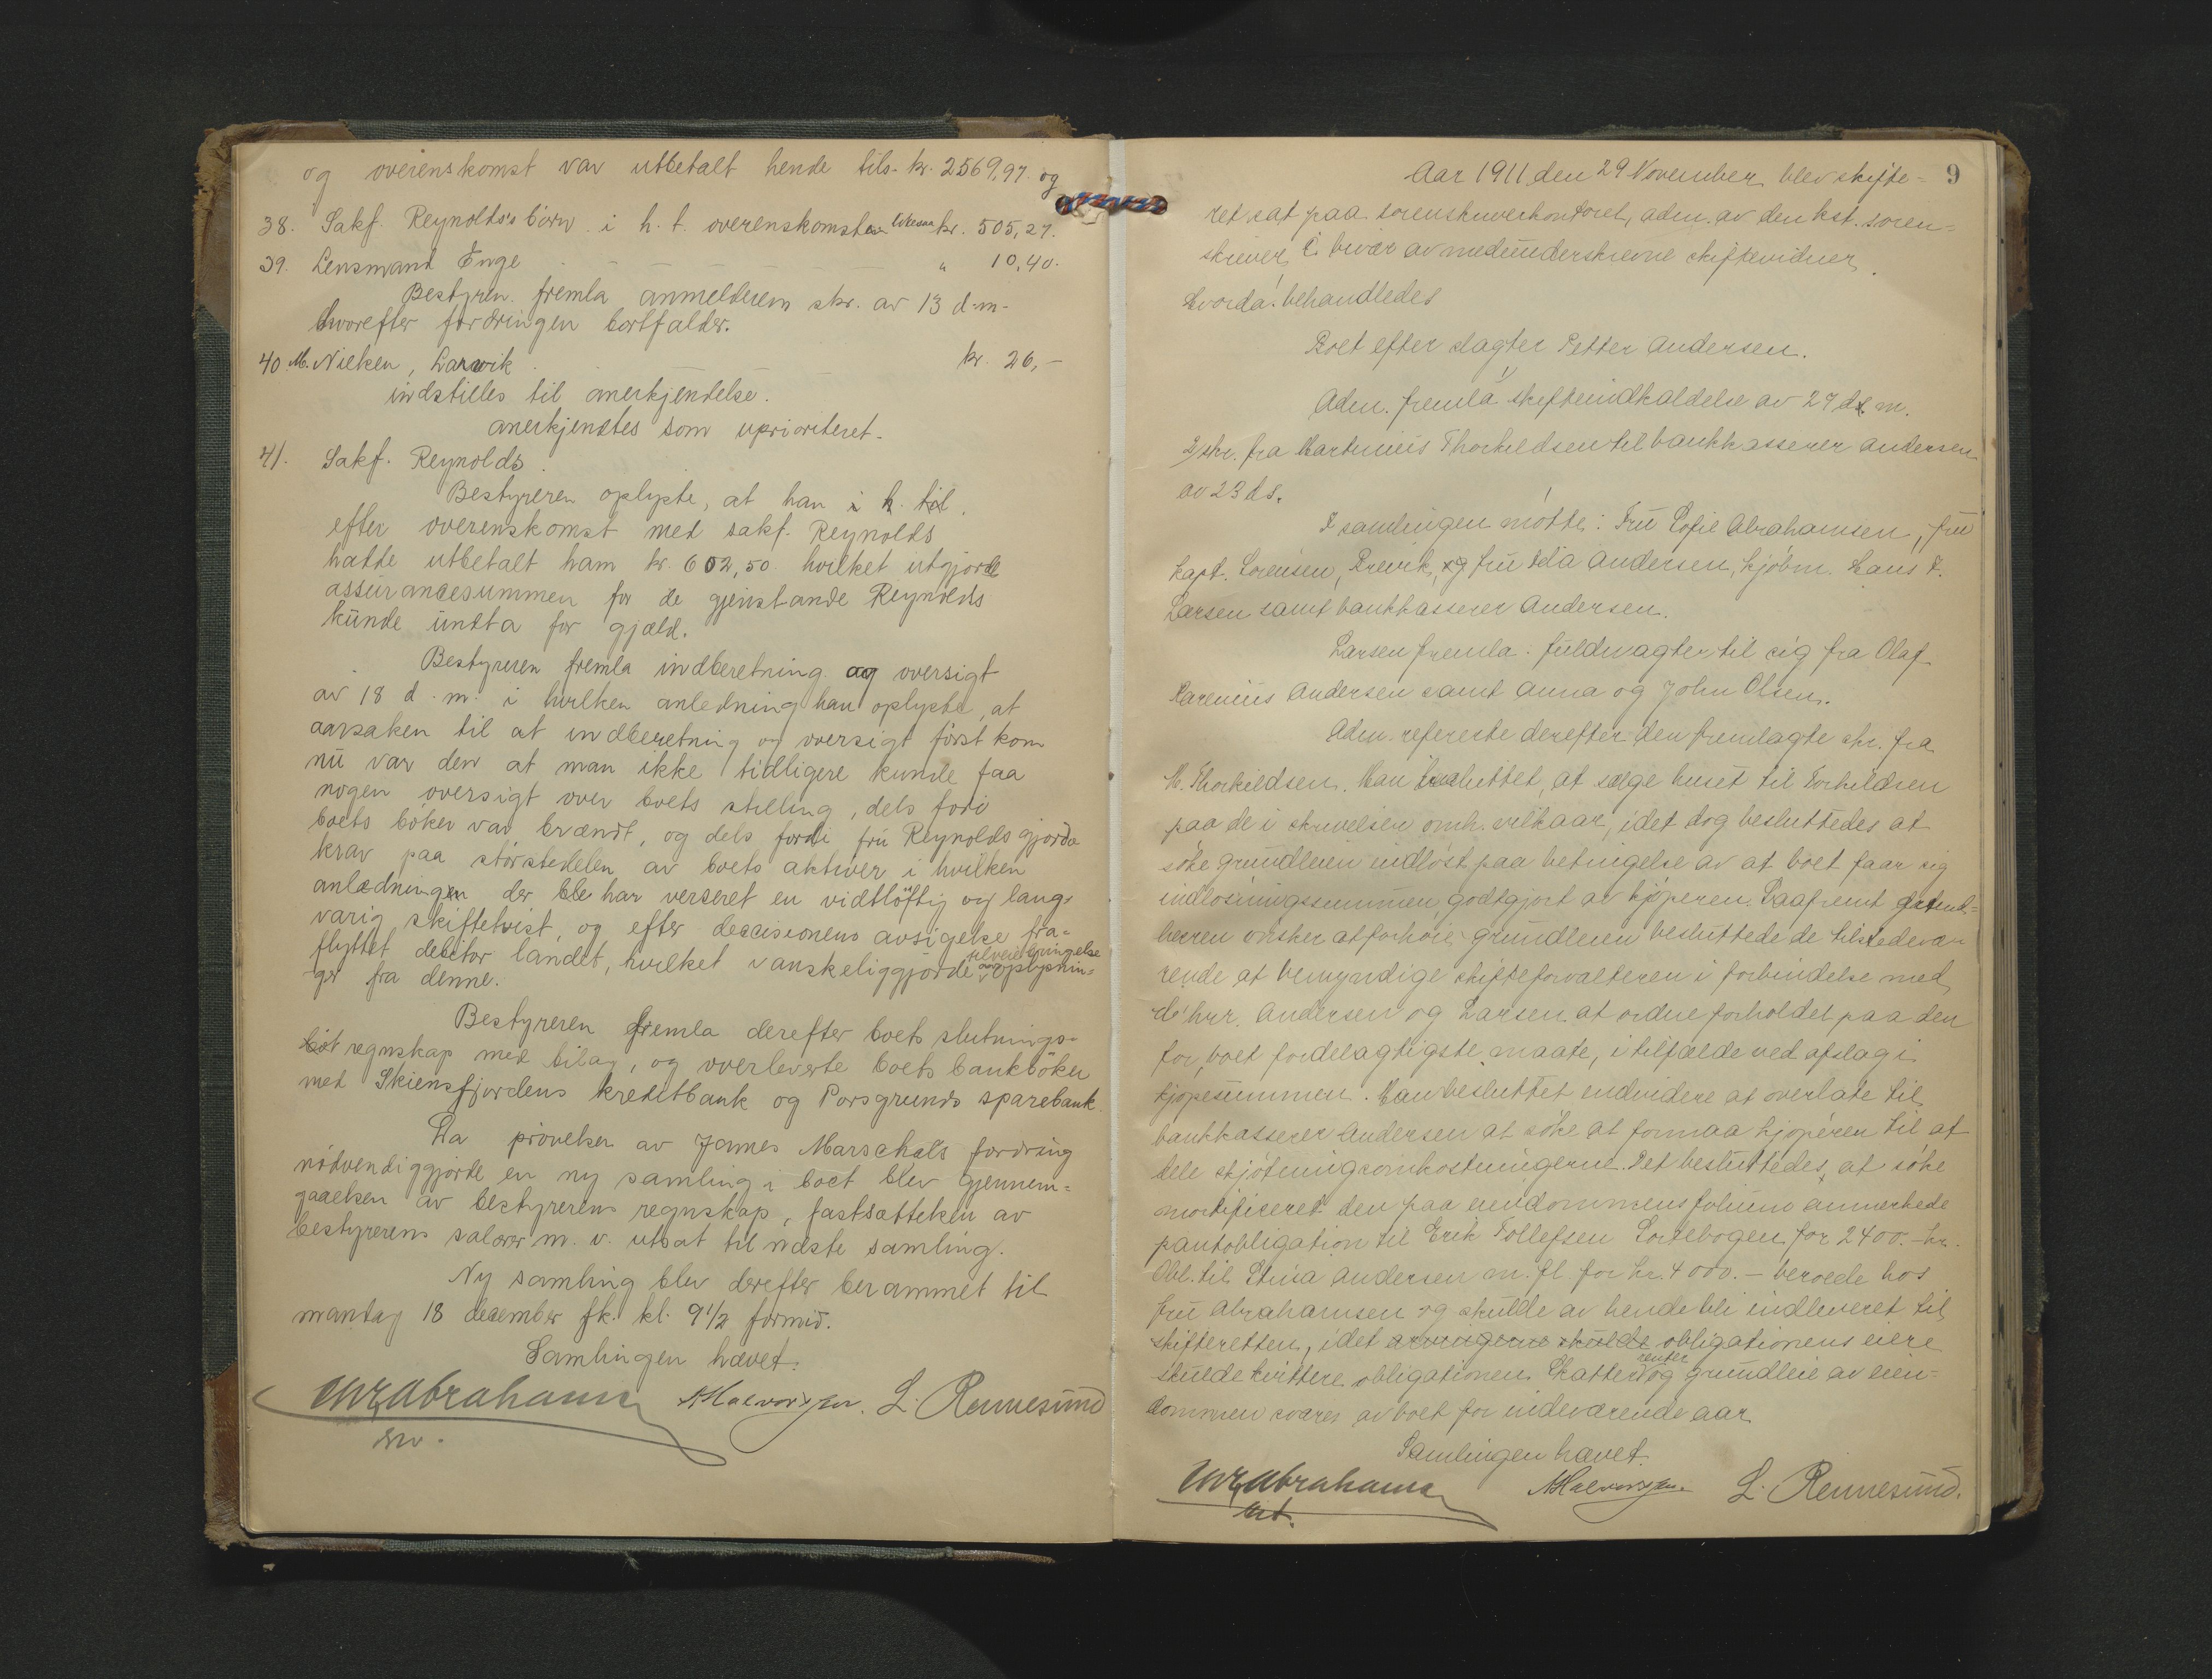 og overenskomst var utbetalt hende tils. kr. 2569,97. og
38. Sakf. Reynolds's börn i h. t. overenskomsten kr. 505,27.
39. Lensmand Enge " 10,40.
Bestyren. fremla anmelderens skr. av 13 d.m.
hvorefter fordringen bortfalder.
40. M. Nielsen, Larvik kr. 26,–
indstilles til anerkjendelse.
anerkjendtes som uprioriteret.
41. Sakf. Reynolds.
Bestyreren oplyste, at han i h. til.
efter overenskomst med sakf. Reynolds
hadde utbetalt ham kr. 602,50. hvilket utgjorde
assurancesummen for de gjenstande Reynolds
kunde undta for gjæld.
Bestyreren fremla indberetning og oversigt
av 18 d. m. i hvilken anledning han oplyste, at
aarsaken til at indberetning og oversigt först kom
nu var den at man ikke tidligere kunde faa
nogen oversigt over boets stilling, dels fordi
boets böker var brændt, og dels fordi fru Reynolds gjorde
krav paa störstedelen av boets aktiver i hvilken
anledningen der ble har verseret en vidtlöftig og lang-
varig skiftetvist, og efter decisionens avsigelse fra-
flyttet debitor landet, hvilket vanskeliggjorde tilveiebringelse av oplysnin-
ger fra denne.
Bestyreren fremla derefter boets slutnings-
regnskap med bilag, og overleverte boets bankböker
med Skiensfjordens kreditbank og Porsgrunds sparebank.
Da prövelsen av James Marschals fordring
nödvendiggjorde en ny samling i boet blev gjennem-
gaaelsen av bestyrerens regnskap, fastsættelsen av
bestyrerens salærer m. v. utsat til næste samling.
Ny samling blev derefter berammet til
mandag 18 december fk. kl. 9 1/2 formid.
Samlingen hævet.
Abrahams NHalvorsen. L. Rennesund
9
Aar 1911 den 29 November blev skifte-
ret sat paa sorenskriverkontoret, adm. av den kst. soren-
skriver, i övær av medunderskrevne skiftevidner.
Hvorda behandledes
Boet efter slagter Petter Andersen.
Adm. fremla skifteindkaldelse av 27 ds. m.
2/ skr. fra Martinius Thorkildsen til bankkasserer Andersen
av 23 ds.
I samlingen mötte: Fru Sofie Abrahamsen, fru
kapt. Sörensen, Brevik, og fru Ida Andersen, kjöbm. Hans F.
Larsen samt bankkasserer Andersen.
Larsen fremla fuldmagter til sig fra Olaf
Parenius Andersen samt Anna og John Olsen.
Adm. refererte derefter den fremlagte skr. fra
M. Thorkildsen. Man besluttet, at sælge huset til Torkildsen
paa de i skrivelsen omh. vilkaar, idet dog besluttedes at
söke grundleien indlöst paa betingelse av at boet faar sig
indlösningssummen godtgjort av kjöperen. Saafremt grund-
herren önsker at forhöie grundleien besluttede de tilstedevæ-
rende at bemyndige skifteforvalteren i forbindelse med
d'hrr. Andersen og Larsen at ordne forholdet paa den
for boet fordelagtigste maate, i tilfælde ved afslag i
kjöpesummen. Man besluttet endvidere at overlate til
bankkasserer Andersen at söke at formaa kjöperen til at
dele skjötningsomkostningerne. Det besluttedes, at söke
mortificeret den paa eiendommens folium anmerkede
pantobligation til Erik Tollefsen Lortebogen for 2400.– kr.
Obl. til Stina Andersen m. fl. for kr. 4000.– beroede hos
fru Abrahamsen og skulde av hende bli indleveret til
skifteretten, idet arvingerne skulde obligationens eiere
skulde kvittere obligationen. Skatter renter og grundleie av eien-
dommen svares av boet for indeværende aar.
Samlingen hævet.
Abrahams NHalvorsen. L. Rennesund.
kst.